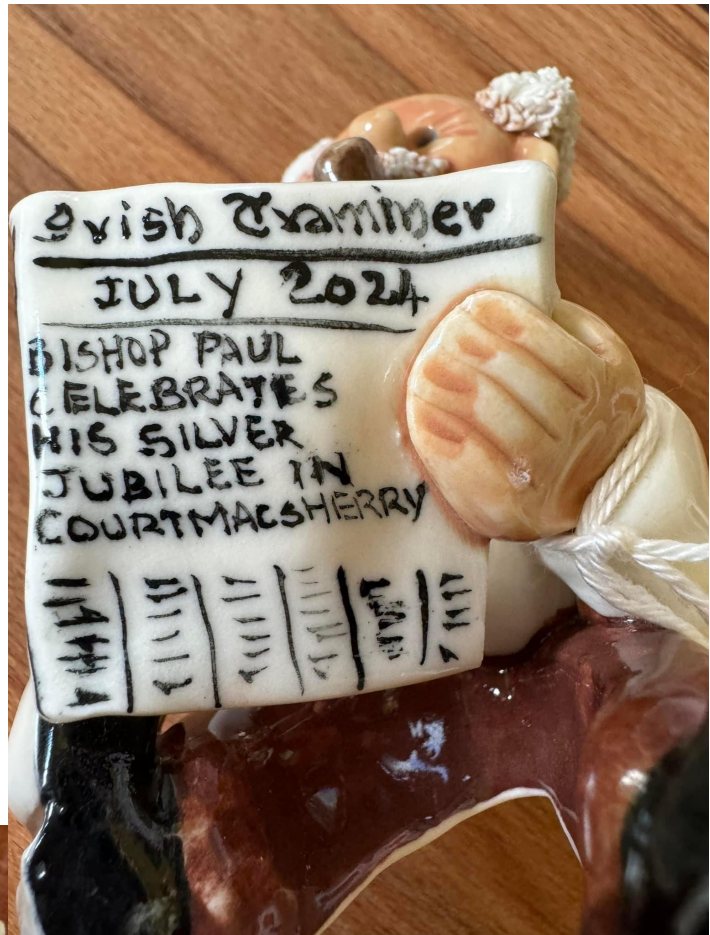 Irish Examiner
JULY 2024
BISHOP PAUL
CELEBRATES
HIS SILVER
JUBILEE IN
COURTMACSHERRY